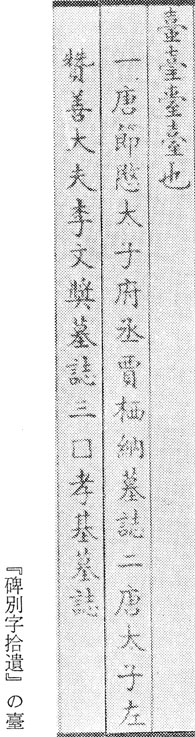 臺臺臺臺也
一唐節愍太子府丞賈栖納墓誌二唐太子左
贊善大夫李文奬墓誌三囗孝基墓誌
『碑別字拾遺』の臺